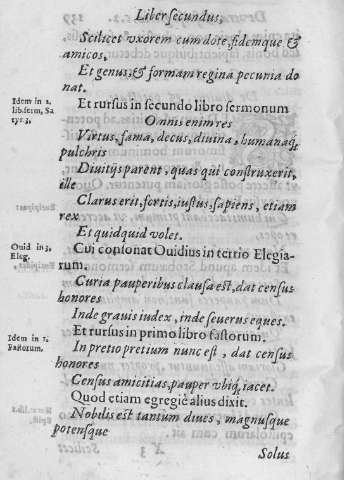 Liber secundus,
Scilicet vxorem cum dote, fidemque &
amicos,
Et genus, & formam regina pecunia do
nat.
Idem in 2.
lib. serm, Sa
tyr. 3,
Et rursus in secundo libro sermonum
Omnis enim res
Virtus, fama, decus, diuina, humanaq́;
pulchris
Diuitijs parent, quas qui construxerit,
ille
Clarus erit, fortis, iustus, sapiens, etiam
rex
Et quidquid volet.
Ouid in 3,
Eleg.
Cui consonat Ouidius in tertio Elegia-
rum.
Curia pauperibus clausa est, dat census
honores
Inde grauis iudex, inde seuerus eques.
Idem in 1.
Fastorum.
Et rursus in primo libro fastorum.
In pretio pretium nunc est, dat census
honores
Census amicitias, pauper vbiq́; iacet.
Quod etiam egregiè alius dixit.
Nobilis est tantum diues, magnusque
potensque
Solus